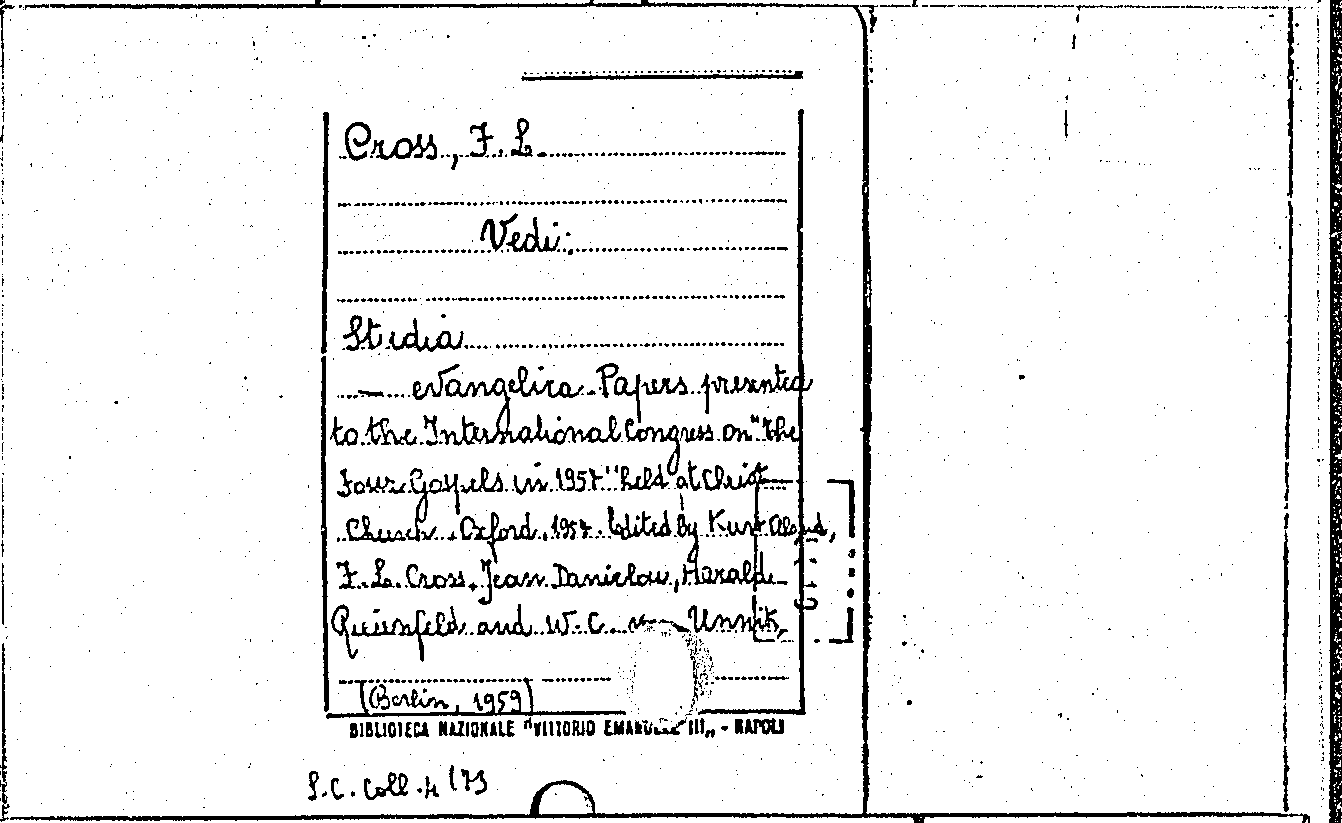 Cross, F. L.
Vedi:
Studia
— evangelica. Papers presented
to the International Congress on "the
Four Gospels in 1957" held at Christ
Church, Oxford, 1957. Edited by Kurt Aland,
F. L. Cross, Jean Danielou, Harald
Riesenfeld and W. C. Unnik,
(Berlin, 1959)
BIBLIOTECA NAZIONALE "VITTORIO EMANUELE III„ - NAPOLI
S.C. Coll. 4 (73